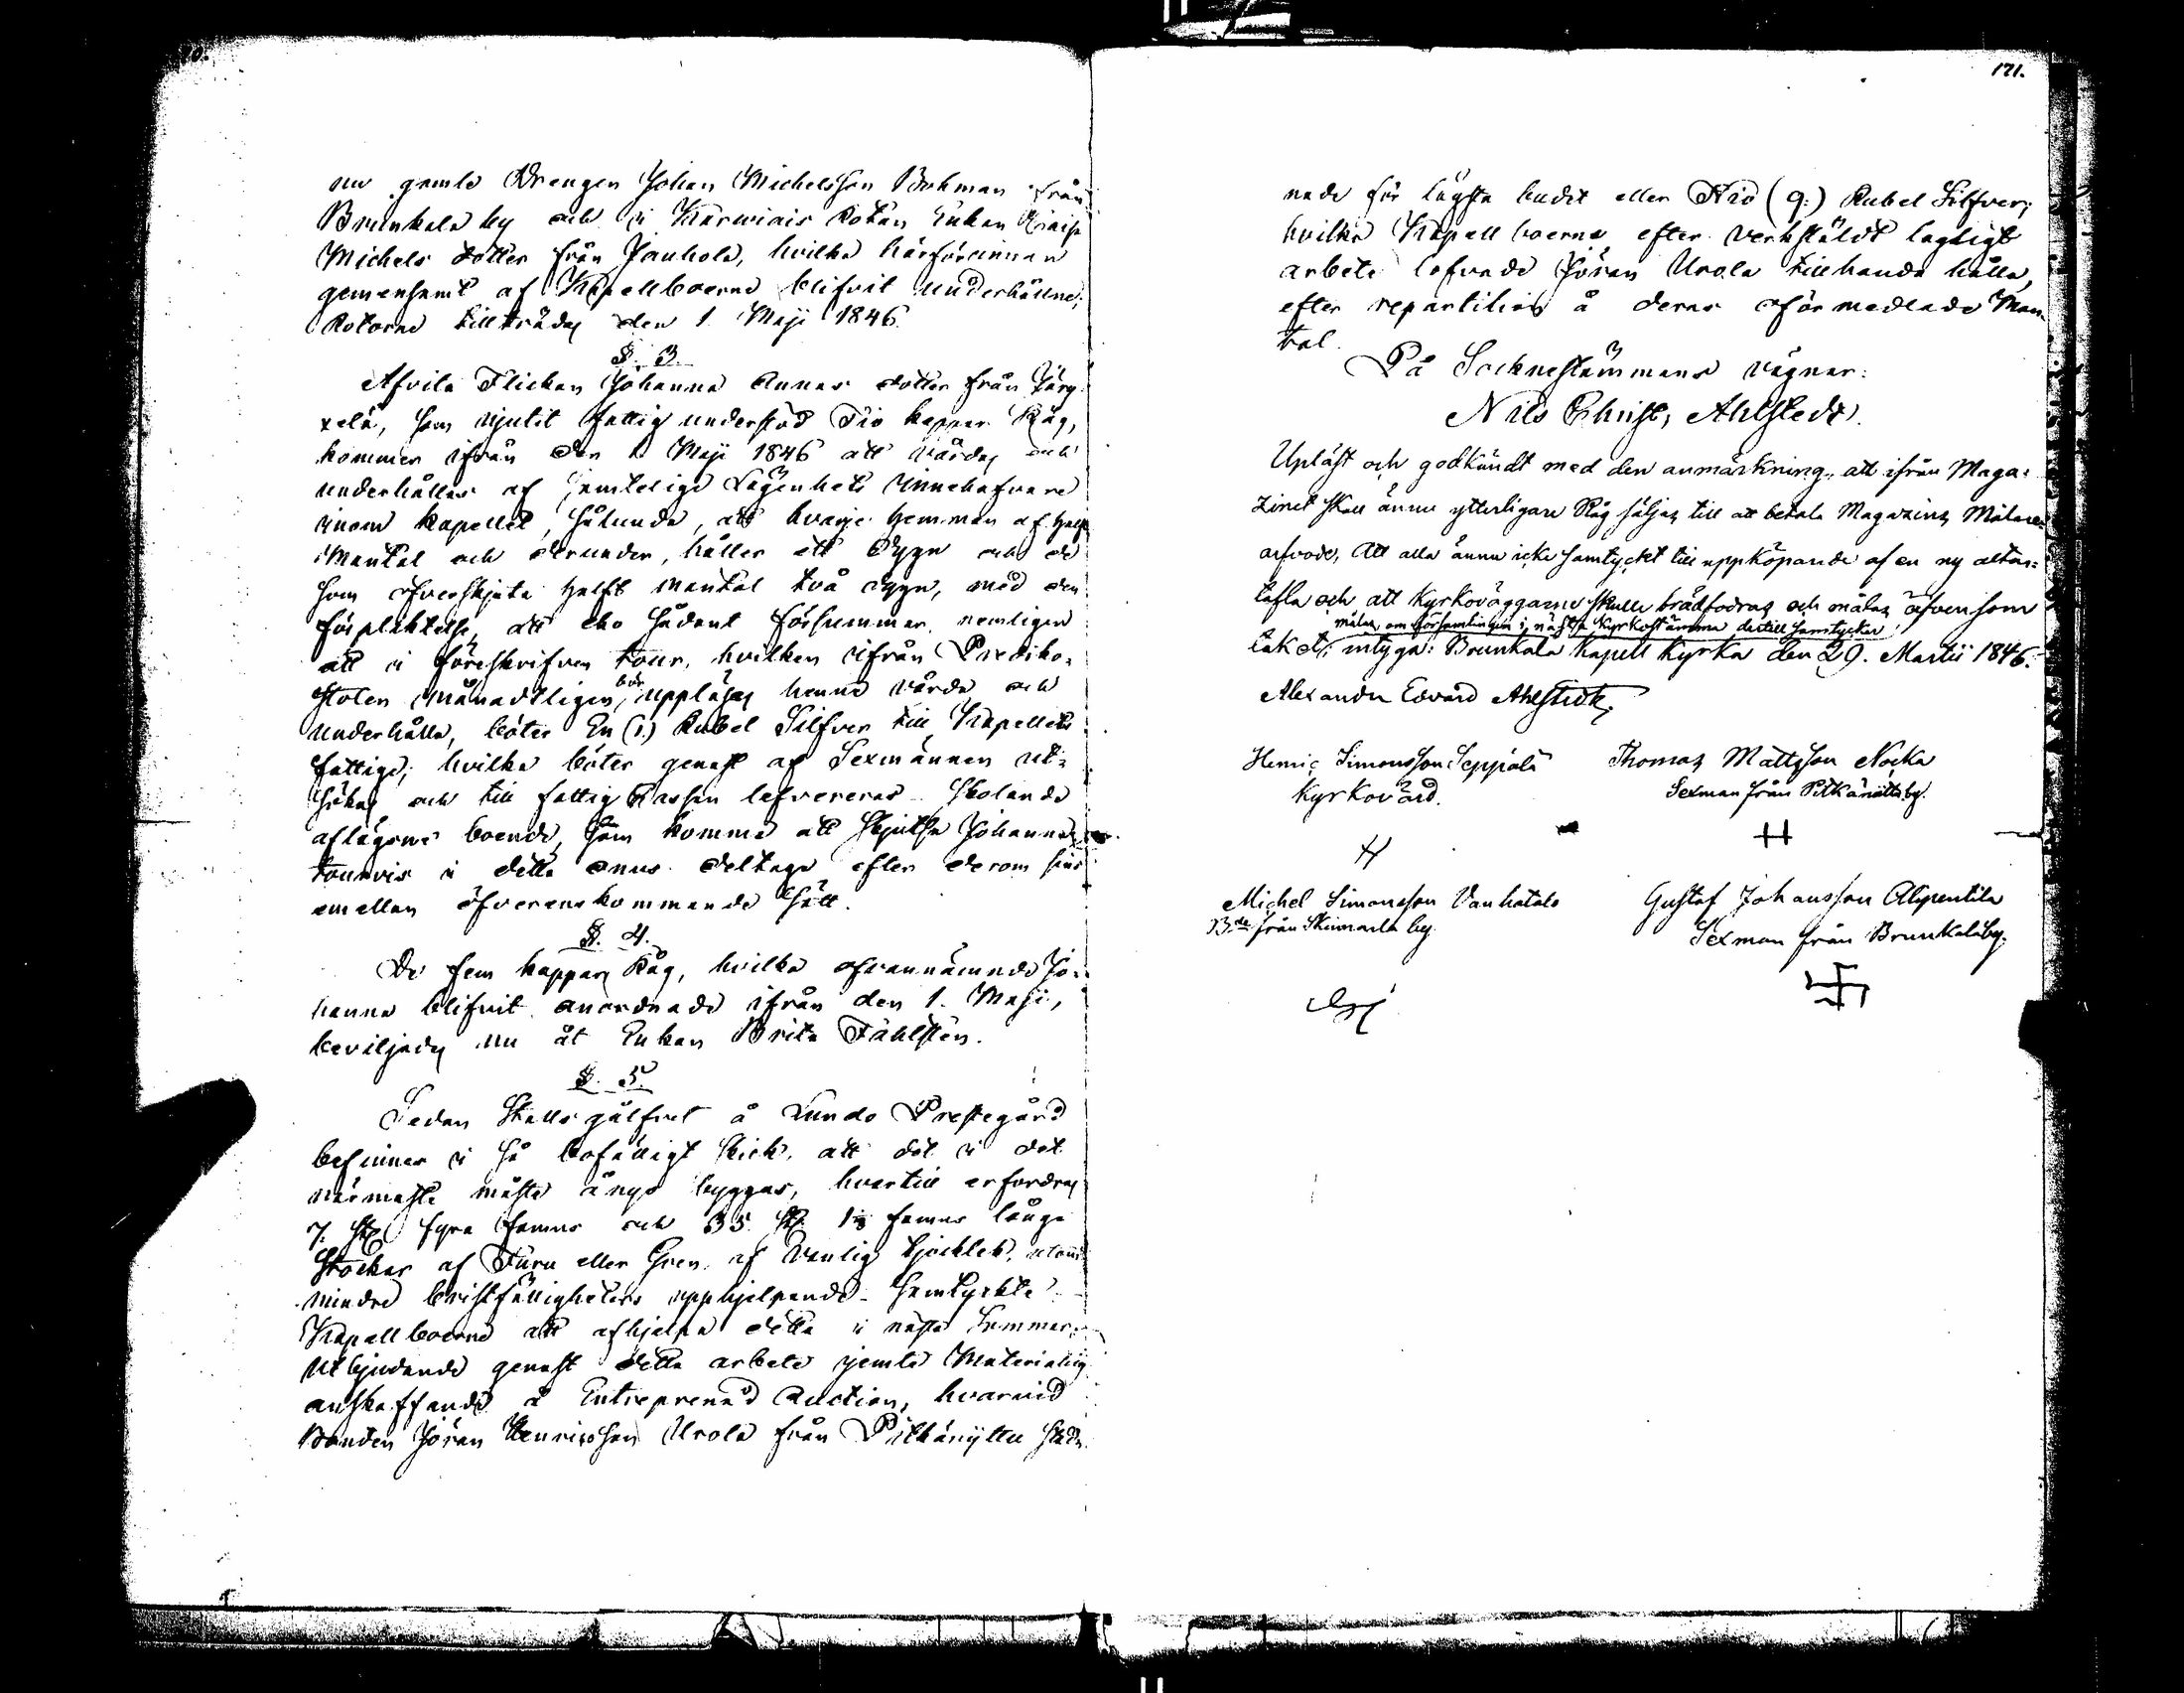 nu gamle Drengen Johan Michelsson Bohman från
Brunkala by och i Karviais Rotan Enkan
Michels dotter från Jauhola, hvilka härförinnan
gemensamt af Kapellboerne blifvit underhållne;
Rotorne tillträdes den 1. Maji 1846.
§. 3.
Afvita Flickan Johanna Annas dotter från
som njutit fattig understöd Tio kappar Råg,
kommer ifrån den 1 Maji 1846 att vårdas och
underhållas af samtelige Lägenhets innehafvare
inom kapellet, sålunda, att hvarje hemman af half
Mantal och derunder, håller ett dygn och de
som öfverskjuta halft mantal två dygn, med den
förpliktelse, att eho sådant försummar, nemligen
att i föreskrifven tour, hvilken ifrån Prediko-
stolen månadtligen bör uppläsas henne vårda och
underhålla, böter En (1.) Rubel Silfver till Kapellets
fattige, hvilka böter genast af Sexmännen ut-
sökas och till fattig Cassan lefvereras. Skolande
aflägsne boende, som komma att skjutsa Johanna
tourvis i detta onus deltaga efter derom sins
emellan öfverenskommande sätt.
§. 4.
De fem kappar Råg, hvilka ofvannämnde Jo-
hanna blifvit anordnade ifrån den 1. Maji,
beviljades nu åt Enkan Brita Fåhlsten.
§. 5.
Sedan Stallsgålfvet å Lundo Prestegård
befinnes i så bofälligt skick, att det i det
närmaste måste ånyo byggas, hvartill erfordras
7. st. fyra famns och 35 st. 1½ famns långe
Stockar af Furu eller Gran af vanlig tjocklek, utom
mindre bristfälligheters upphjelpande. Samtyckte
Kapellboerne att afhjelpa detta i nästa Sommar,
utbjudande genast detta arbete jemte Materialiers
anskaffande å Entreprenad Auction, hvarvid
Bonden Jöran Henricsson Urola från Pitkänjittu stad-
171.
nade för lägsta budet eller Nio (9.) Rubel Silfver,
hvilka Kapellboerne efter verkstäldt lagligt
arbete lofvade Jöran Urola tillhanda hålla,
efter repartition å deras oförmedlade Man-
tal.
På Socknestämmans vägnar:
Nils Christ. Ahlstedt.
Upläst och godkändt med den anmärkning, att ifrån Maga-
zinet skall ännu ytterligare Råg säljas till att betala Magazins Mätare
arfvode, Att alla ännu icke samtyckt till uppköpande af en ny altar-
tafla och att Kyrkoväggarne skulle brädfodras och målas, äfvensom
målas, om församlingen i nästa Kyrkostämma dertill samtycker,
taket; intyga: Brunkala Kapell Kyrka den 29. Martii 1846.
Alexander Edvard Ahlstedt,
Henric Simonsson Seppälä
Kyrkovärd.
Thomas Mattsson Nocka
Sexman från Pitkäniittu by.
Michel Simonsson Vanhatalo
B:de från Skinnarla by.
Gustaf Johansson Alipentila
Sexman från Brunkala by.